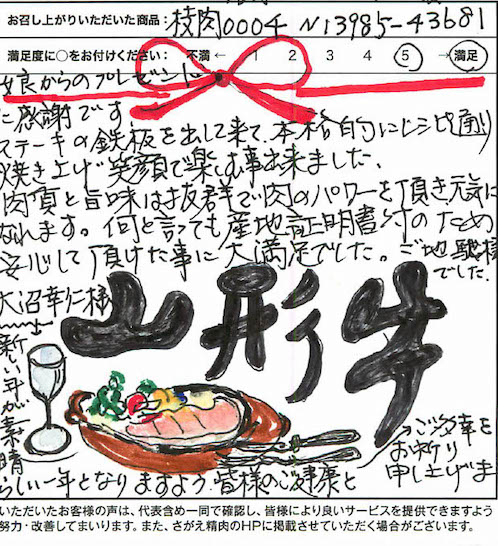 お召し上がりいただいた商品： 枝肉0004 N13985-43681
満足度に○をお付けください： 不満 ← 1 2 3 4 5 → 満足
娘からのプレゼント
に感謝です
ステーキの鉄板を出して来て、本格的にレシピ通り
焼き上げ笑顔で楽しむ事出来ました。
肉質と旨味は抜群で肉のパワーを頂き元気に
なれます。何と言っても産地証明書付のため
安心して頂けた事に大満足でした。ご地
でした。
大沼幸仁様
山形牛
新い年が素晴
らしい一年となりますよう、皆様のご健康と
ご多幸を
お祈り
申し上げま
いただいたお客様の声は、代表含め一同で確認し、皆様により良いサービスを提供できますよう
努力・改善してまいります。また、さがえ精肉のHPに掲載させていただく場合がございます。